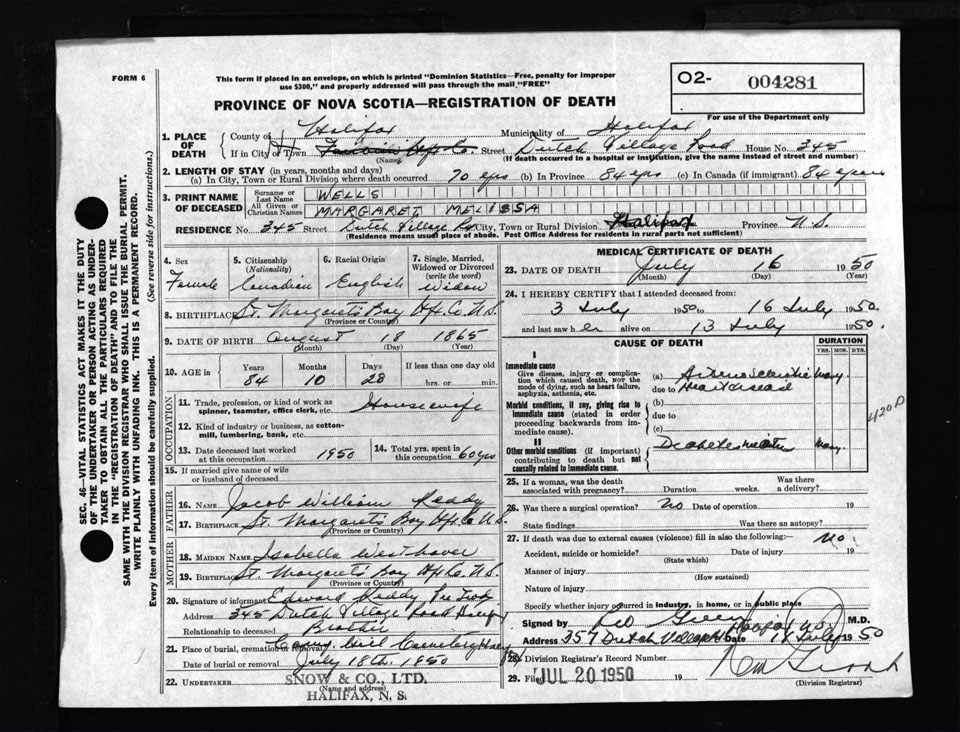 FORM 6
This form if placed in an envelope, on which is printed "Dominion Statistics—Free, penalty for improper
use $300," and properly addressed will pass through the mail "FREE"
O2- 004281
For use of the Department only
PROVINCE OF NOVA SCOTIA—REGISTRATION OF DEATH
1. PLACE OF DEATH
County of Halifax Municipality of Halifax
If in City or Town Street Dutch Village Road House No. 345
(Name) (If death occurred in a hospital or institution, give the name instead of street and number)
2. LENGTH OF STAY (in years, months and days)
(a) In City, Town or Rural Division where death occurred 70 yrs (b) In Province 84 yrs (c) In Canada (if immigrant) 84 years
3. PRINT NAME OF DECEASED
Surname or Last Name WELLS
All Given or Christian Names MARGARET MELISSA
RESIDENCE No. 345 Street Dutch Village Rd City, Town or Rural Division Halifax Province N.S.
(Residence means usual place of abode. Post Office Address for residents in rural parts not sufficient)
4. Sex Female
5. Citizenship (Nationality) Canadian
6. Racial Origin English
7. Single, Married, Widowed or Divorced (write the word) Widow
8. BIRTHPLACE St. Margaret's Bay Hfx Co. N.S.
(Province or Country)
9. DATE OF BIRTH August 18 1865
(Month) (Day) (Year)
10. AGE in Years 84 Months 10 Days 28 If less than one day old
hrs. or min.
OCCUPATION
11. Trade, profession, or kind of work as
spinner, teamster, office clerk, etc. Housewife
12. Kind of industry or business, as cotton-
mill, lumbering, bank, etc.
13. Date deceased last worked
at this occupation 1950
14. Total yrs. spent in
this occupation 60 yrs
15. If married give name of wife
or husband of deceased
FATHER
16. Name Jacob William Reddy
17. Birthplace St. Margaret's Bay Hfx Co N.S.
(Province or Country)
MOTHER
18. Maiden Name Isabella Westhaver
19. Birthplace St. Margaret's Bay Hfx Co. N.S.
(Province or Country)
20. Signature of informant Edward Reddy
Address 345 Dutch Village Road Halifax
Relationship to deceased Brother
21. Place of burial, cremation or removal Cemetery
Date of burial or removal July 18th, 1950
22. UNDERTAKER SNOW & CO., LTD.
(Name and address)
HALIFAX, N. S.
MEDICAL CERTIFICATE OF DEATH
23. DATE OF DEATH July 16 1950
(Month) (Day) (Year)
24. I HEREBY CERTIFY that I attended deceased from:
3 July 1950 to 16 July 1950.
and last saw her alive on 13 July 1950.
CAUSE OF DEATH
DURATION
YRS. MOS. DYS.
I
Immediate cause
Give disease, injury or compli-
cation which caused death, NOT the
mode of dying, such as heart failure,
asphyxia, asthenia, etc.
(a) Arteriosclerotic many
due to Heart disease
Morbid conditions, if any, giving rise to
immediate cause (stated in order
proceeding backwards from im-
mediate cause).
(b)
due to
(c)
II
Other morbid conditions (if important)
contributing to death but not
causally related to immediate cause.
Diabetes many
25. If a woman, was the death
associated with pregnancy? Duration weeks. Was there
a delivery?
26. Was there a surgical operation? No Date of operation 19
State findings Was there an autopsy?
27. If death was due to external causes (violence) fill in also the following:— No
Accident, suicide or homicide? Date of injury 19
(State which)
Manner of injury
(How sustained)
Nature of injury
Specify whether injury occurred in industry, in home, or in public place
Signed by Leo Green M.D.
Address 357 Dutch Village Rd Date 18 July 1950
28. Division Registrar's Record Number
29. Filed JUL 20 1950 19
(Division Registrar)
SEC. 46—VITAL STATISTICS ACT MAKES IT THE DUTY
OF THE UNDERTAKER OR PERSON ACTING AS UNDER-
TAKER TO OBTAIN ALL THE PARTICULARS REQUIRED
IN THE "REGISTRATION OF DEATH" AND TO FILE THE
SAME WITH THE DIVISION REGISTRAR WHO SHALL ISSUE THE BURIAL PERMIT.
WRITE PLAINLY WITH UNFADING INK. THIS IS A PERMANENT RECORD.
Every item of information should be carefully supplied. (See reverse side for instructions.)